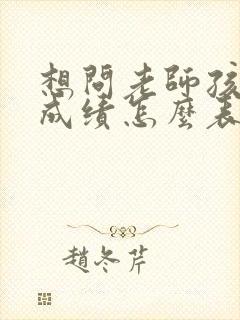 想問老師孩
成績怎麼表
趙冬芹